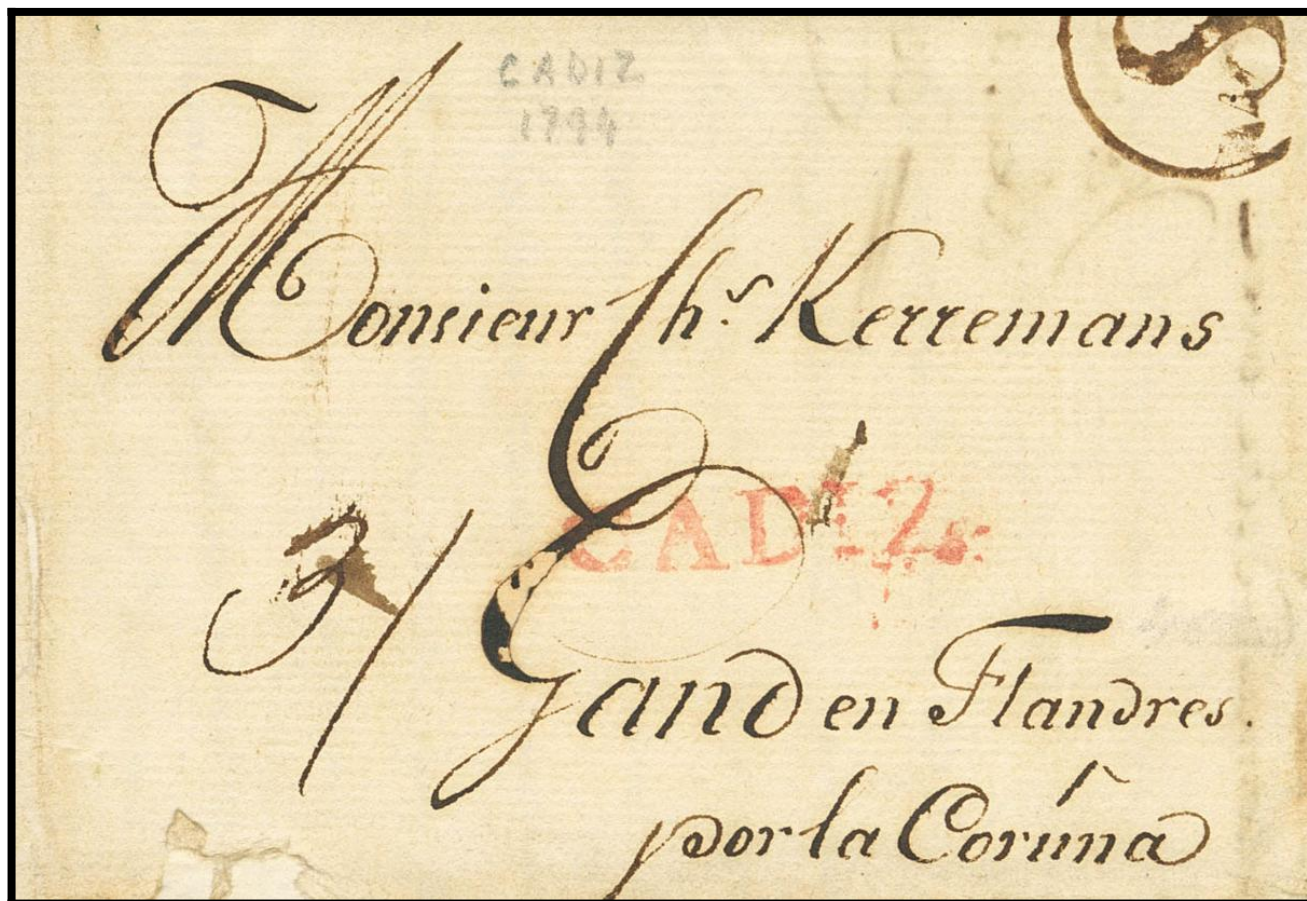 CADIZ
1794
S
Monsieur Ch.s Kerremans
CADIZ
3/
Gand en Flandres.
por la Coruña